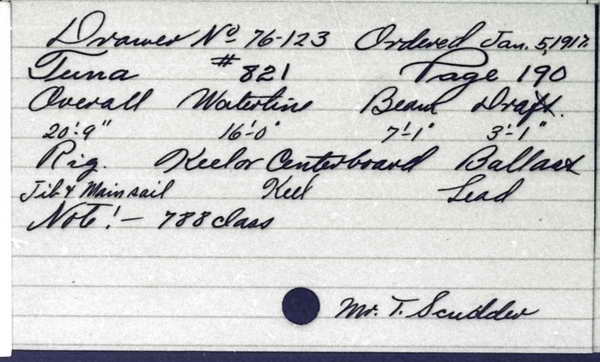 Drawer No 76-123 Ordered Jan. 5, 1917.
Tuna #821 Page 190
Overall Waterline Beam Draft.
20'-9" 16'-0" 7'-1" 3'-1"
Rig. Keel or Centerboard Ballast
Jib & Mainsail Keel Lead
Note! - 788 class
Mr. T. Scudder